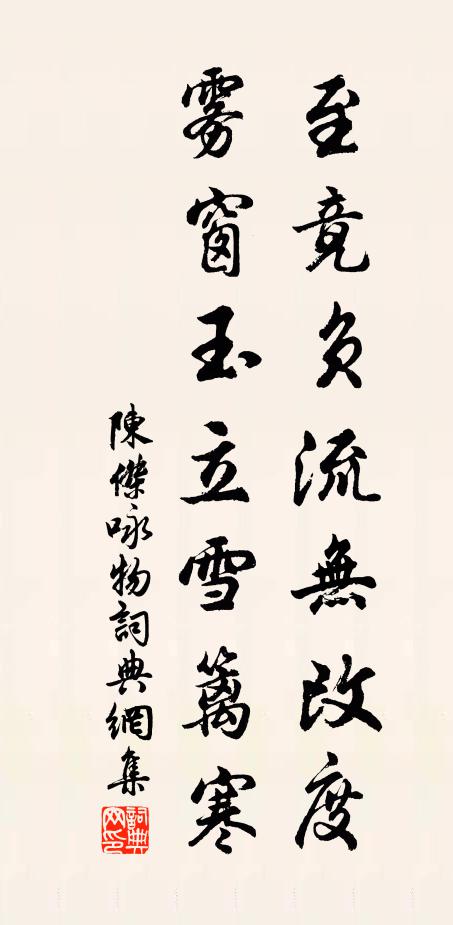 至竟負流無改度
雾窗玉立雪籬寒
陳傑咏物詞典網集
詞典网印